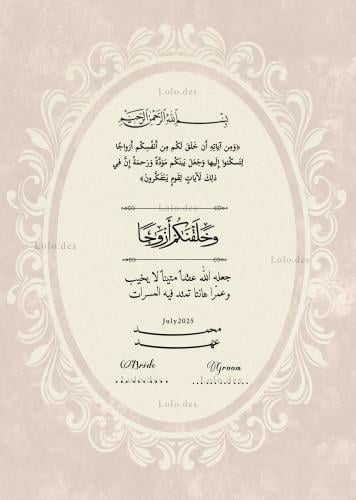 Lolo.des
بِسْمِ اللَّهِ الرَّحْمَٰنِ الرَّحِيمِ
﴿وَمِن آياتِهِ أَن خَلَقَ لَكُم مِن أَنفُسِكُم أَزواجًا
لِتَسكُنوا إِلَيها وَجَعَلَ بَينَكُم مَوَدَّةً وَرَحمَةً إِنَّ في
ذلِكَ لَآياتٍ لِقَومٍ يَتَفَكَّرونَ﴾
Lolo.des
وَخَلَقْنَاكُمْ أَزْوَاجًا
Lolo.des Lolo.des
جعله الله عقداً متيناً لا يخيب
وعمرا هانئا تمتد فيه المسرات
July2025
محمد
عهد
Bride Groom
..Lolo.des.. ..Lolo.des..
Lolo.des